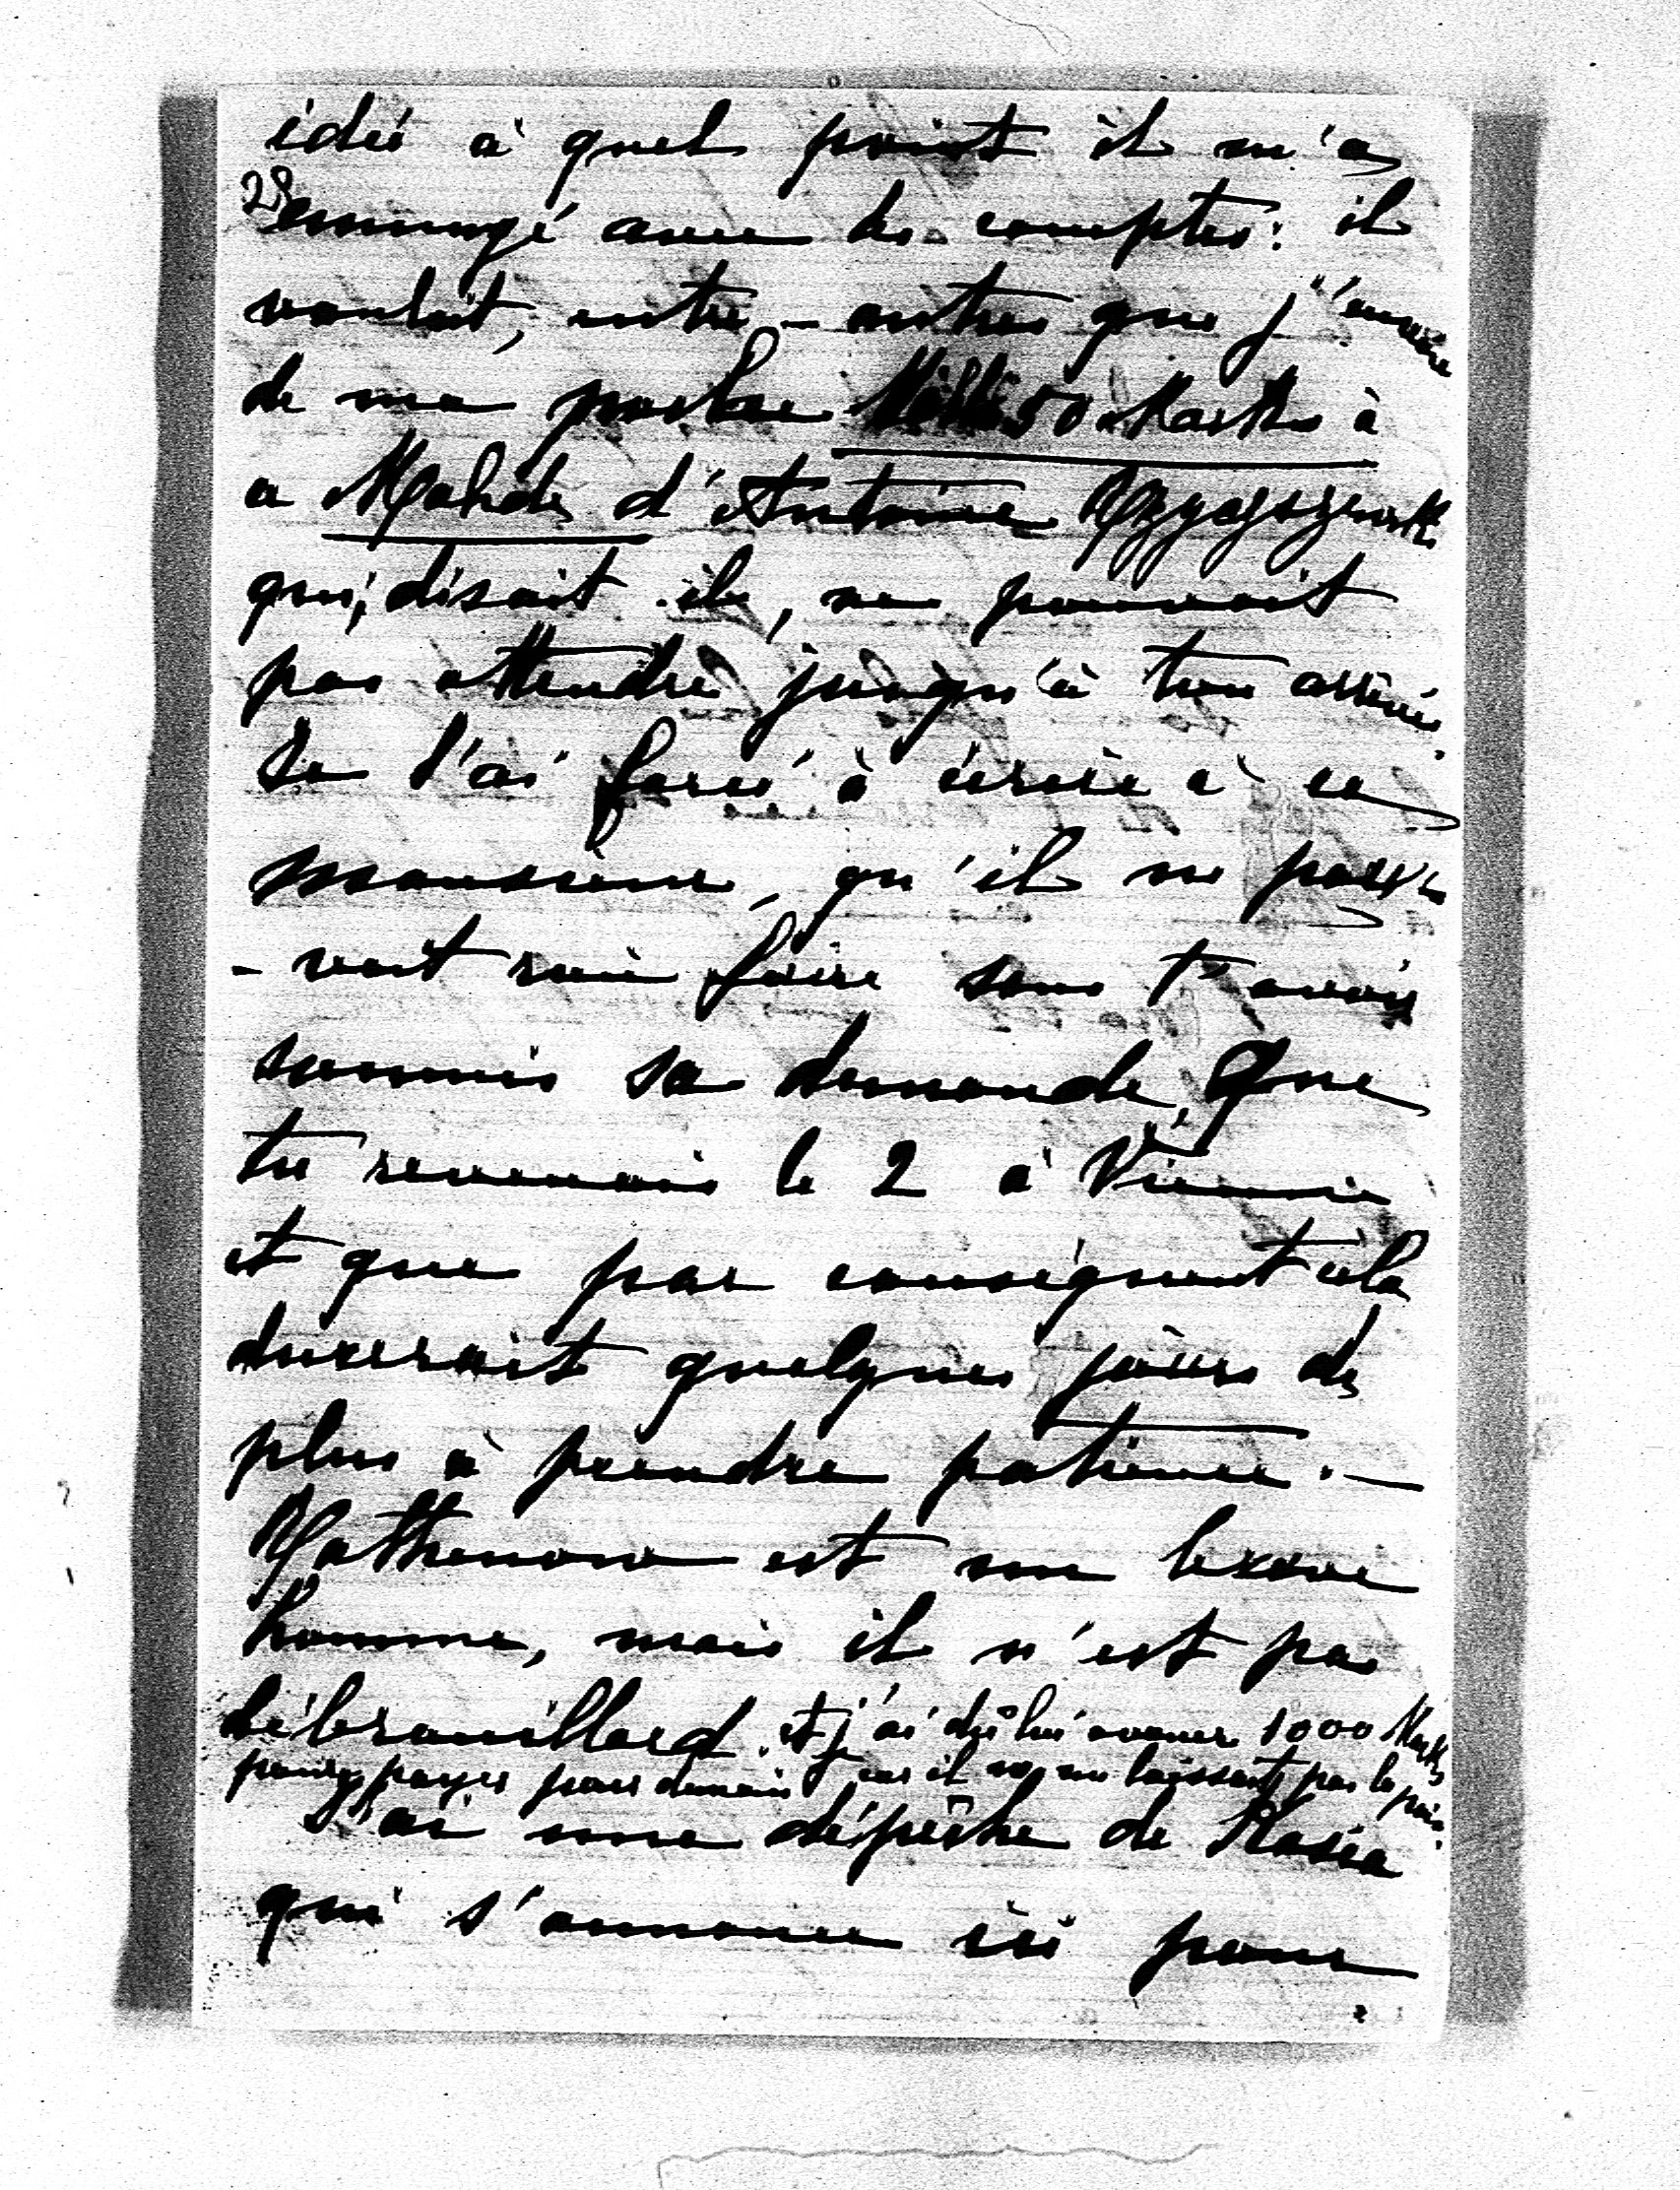 idée à quel point il m'a
28
ennuyé avec les comptes: il
voulait, entre-autres que j'envoie
de ma poche 50 Marks à
a Mahdi d'Antoine
qui, disait il, ne pouvait
pas attendre jusqu'à ton arrivée.
Je l'ai forcé à écrire à ce
monsieur, qu'il ne pou
-vait rien faire sans t'avoir
soumis sa demande, Que
tu revenais le 2 à Vienne
et que par conséquent cela
durerait quelques jours de
plus à prendre patience. —
Rathenow est un brave
homme, mais il n'est pas
débrouillard. et j'ai dû lui avancer 1000 Marks
pour payer pour demain car il ne me laissait pas la paix.
J'ai une dépêche de Rosia
qui s'annonce ici pour